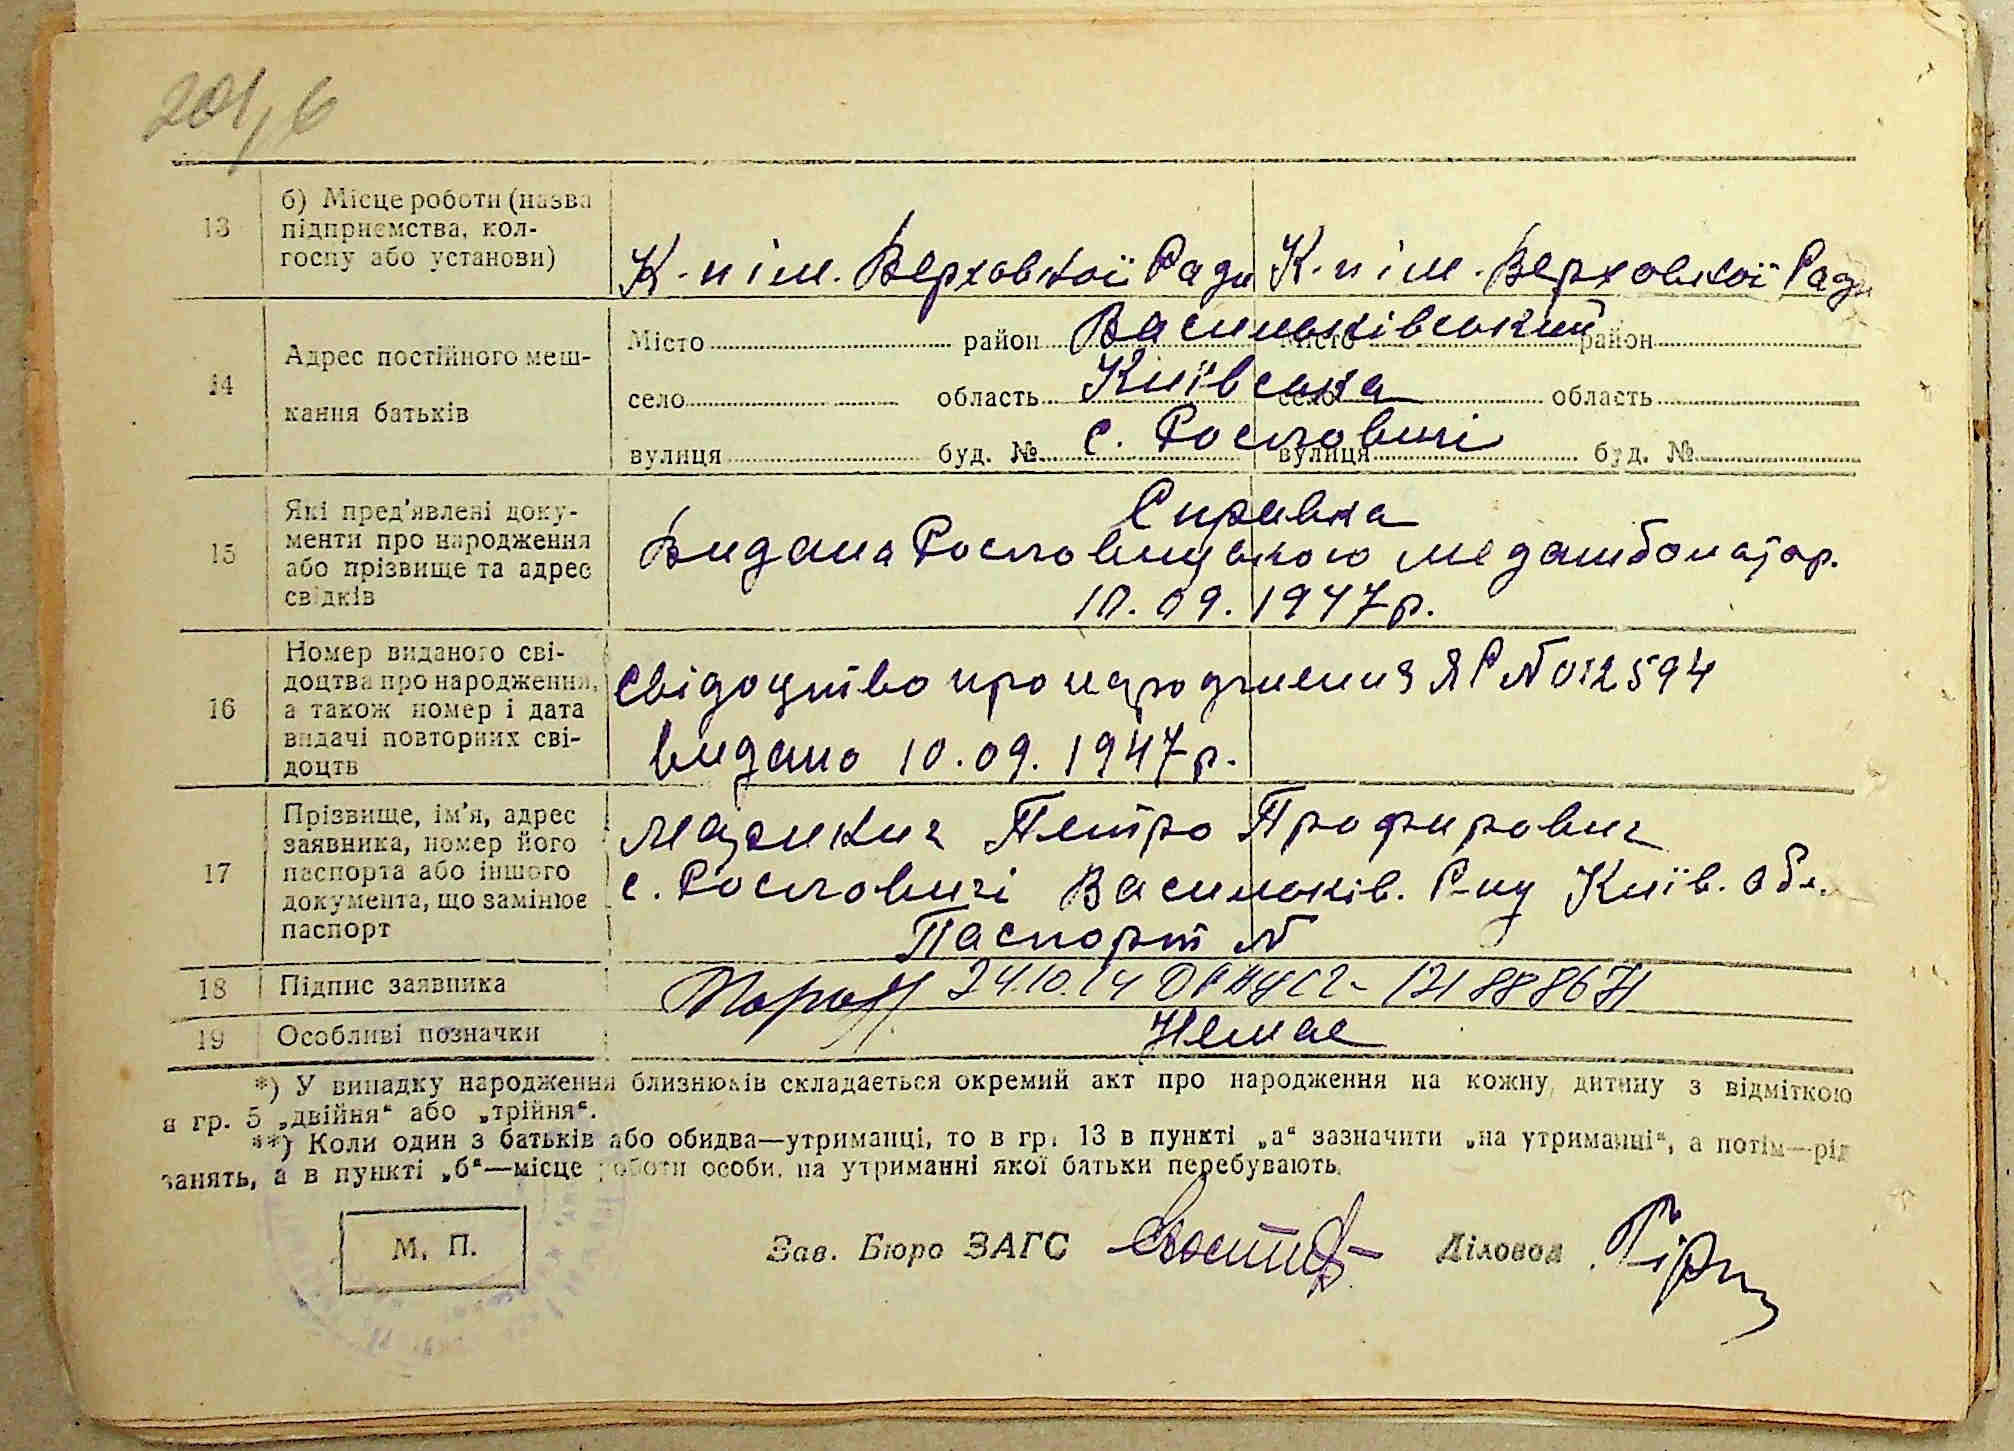 201,6
13
б) Місце роботи (назва
підприємства, кол-
госпу або установи)
К-п ім. Верховкої Ради К-п ім. Верховкої Ради
14
Адрес постійного меш-
кання батьків
Місто район Васильківський місто район
село область Київська село область
вулиця буд. № с. Рословичі вулиця буд. №
15
Які пред'явлені доку-
менти про народження
або прізвище та адрес
свідків
Справка
Видана Рословицькою
10.09.1947р.
16
Номер виданого сві-
доцтва про народження,
а також номер і дата
видачі повторних сві-
доцтв
Свідоцтво про народження ЯР № 012594
видано 10.09.1947р.
17
Прізвище, ім'я, адрес
заявника, номер його
паспорта або іншого
документа, що замінює
паспорт
Петро Профирович
с. Рословичі Васильків. Р-ну Київ. обл.
Паспорт №
18
Підпис заявника
24.10.14
19
Особливі позначки
Немає
*) У випадку народження близнюків складається окремий акт про народження на кожну дитину з відміткою
в гр. 5 „двійня“ або „трійня“.
**) Коли один з батьків або обидва—утриманці, то в гр. 13 в пункті „а“ зазначити „на утриманні“, а потім—рід
занять, а в пункті „б“—місце роботи особи, на утриманні якої батьки перебувають.
М. П.
Зав. Бюро ЗАГС
Діловод